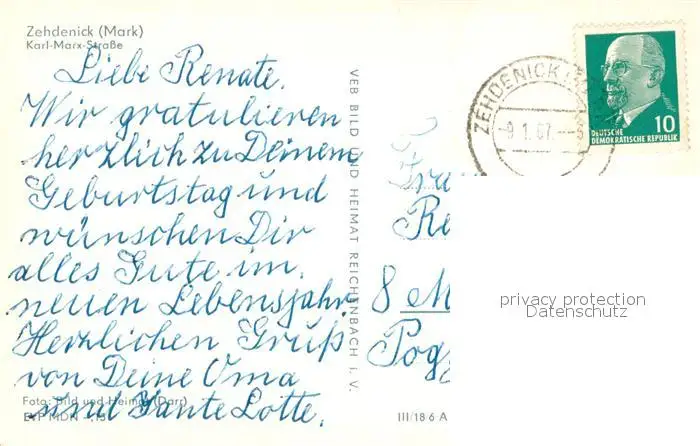 Zehdenick (Mark)
Karl-Marx-Straße
Liebe Renate.
Wir gratulieren
herzlich zu Deinem
Geburtstag und
wünschen Dir
alles Gute im
neuen Lebensjahr.
Herzlichen Gruß
von Deine Oma
und Tante Lotte.
Foto: Bild und Heimat (Darr)
EVP MDN
VEB BILD UND HEIMAT REICHENBACH i. V.
III/18 6 A
ZEHDENICK
-9.1.67.--8
10
DEUTSCHE
DEMOKRATISCHE REPUBLIK
Fra
Re
8 M
Pog
privacy protection
Datenschutz